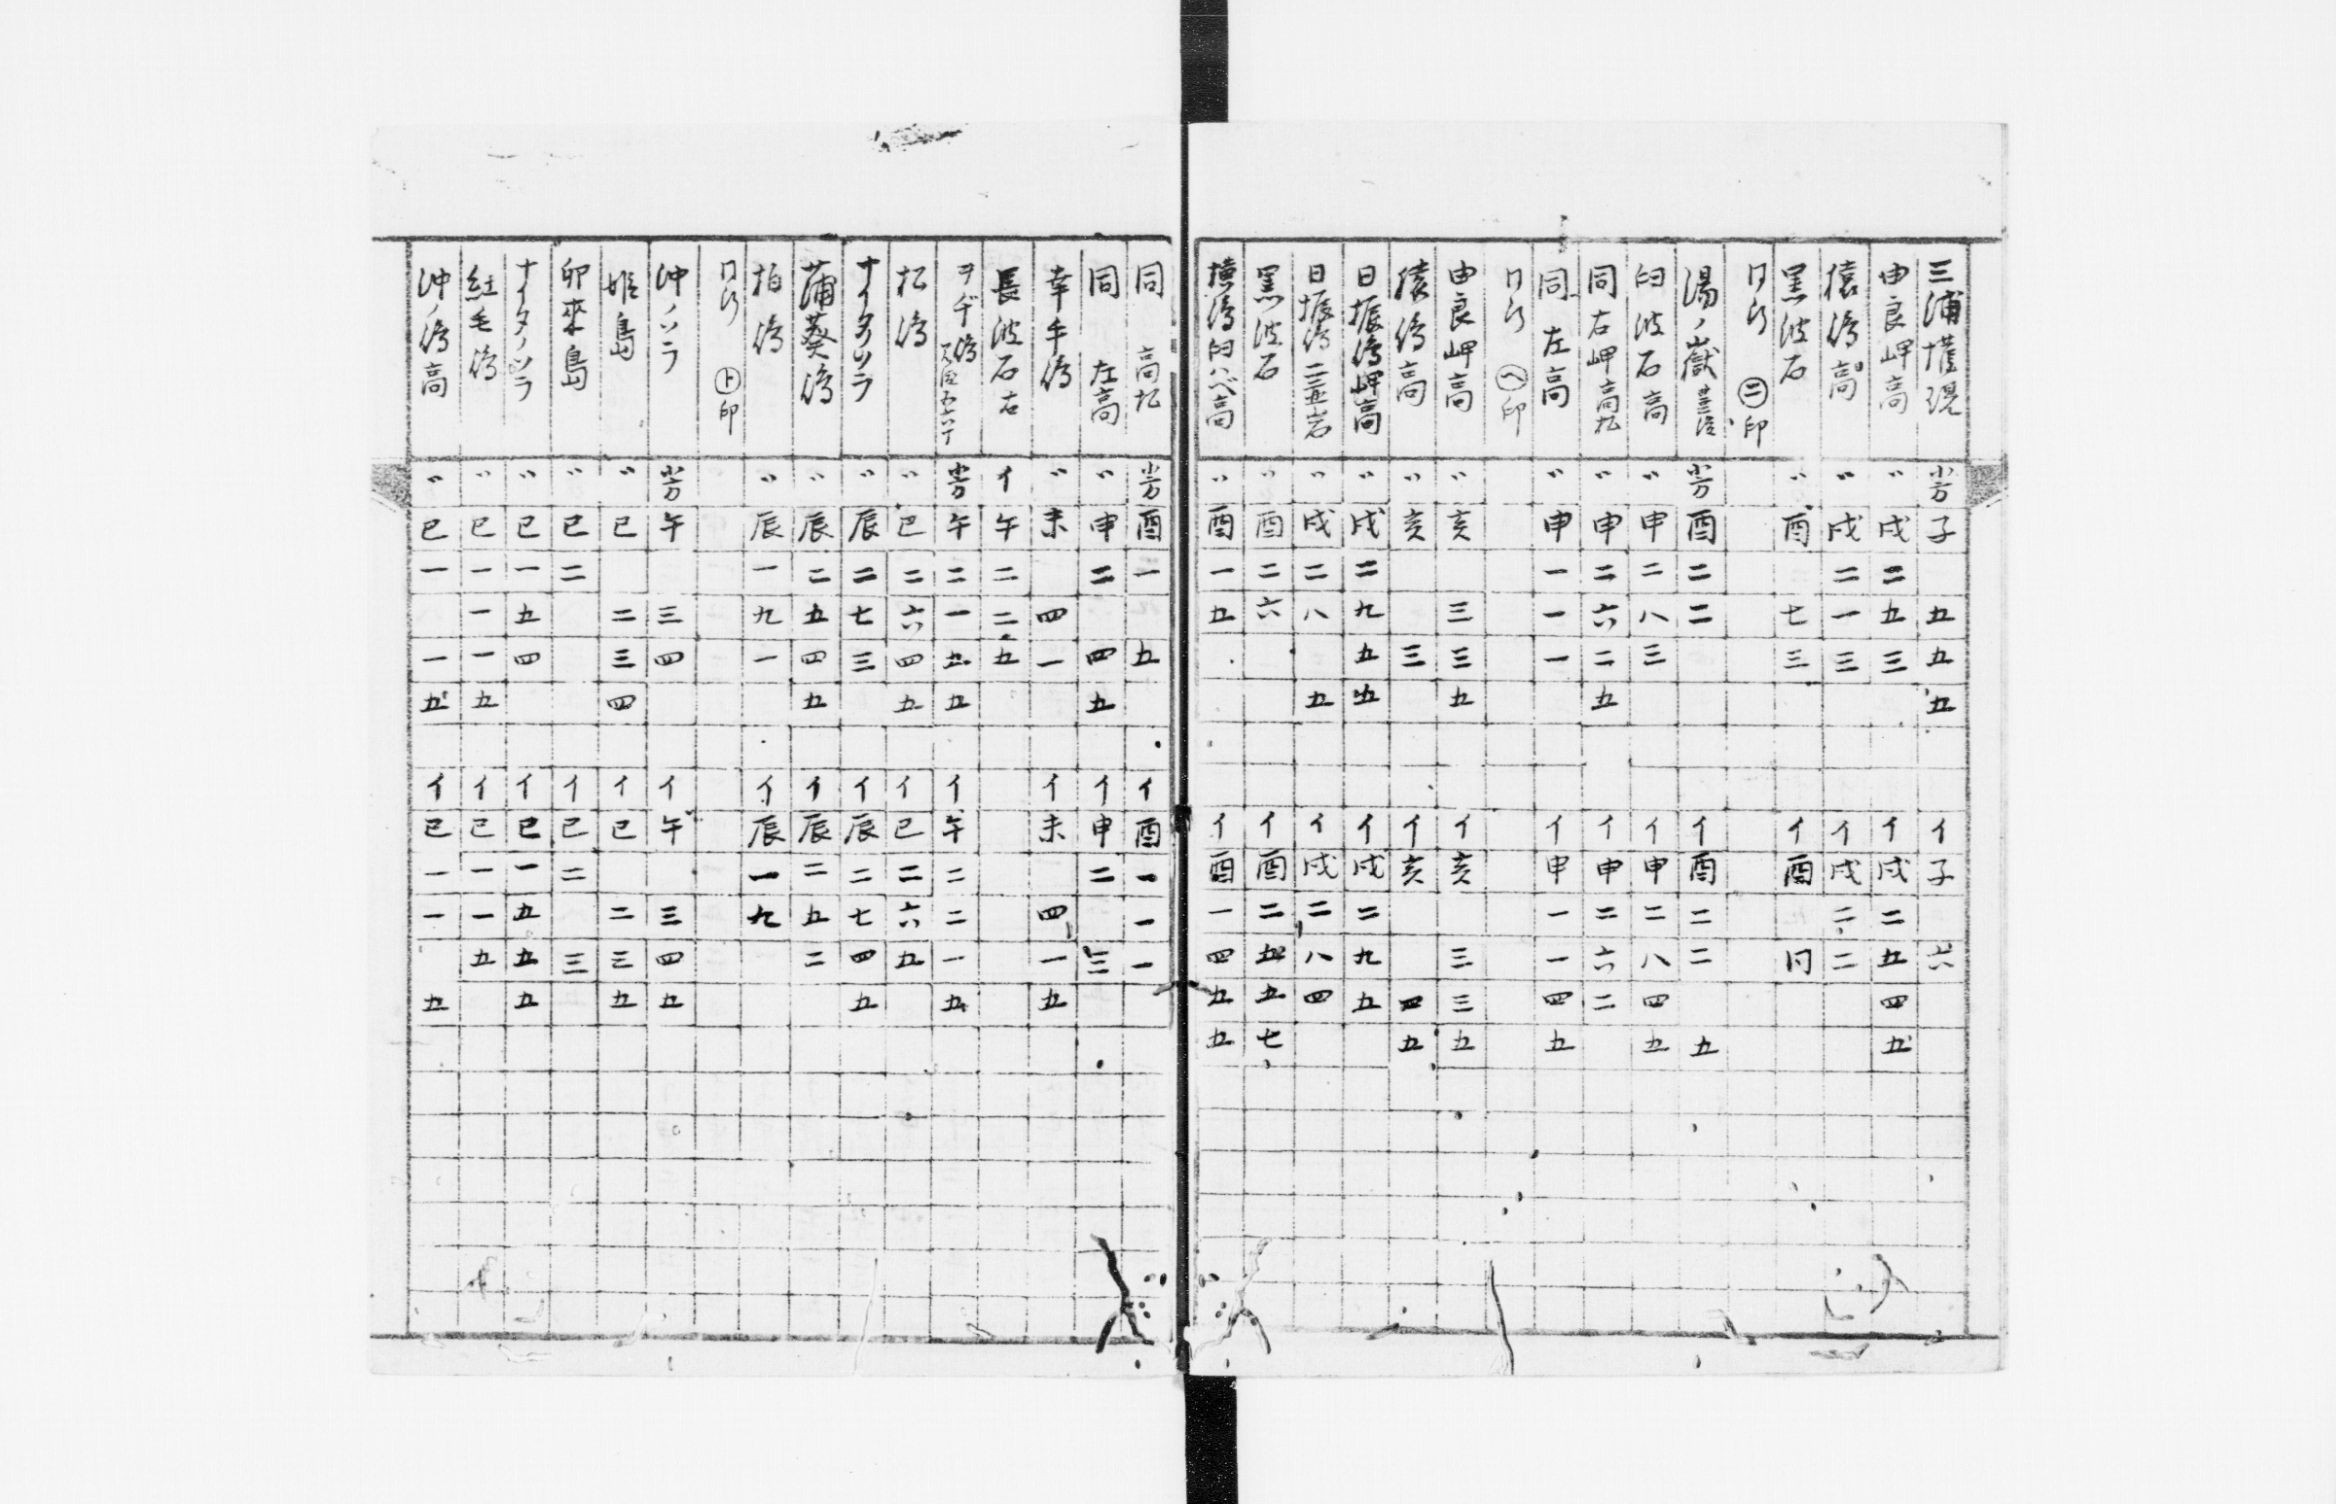 三浦権現 〃 子 五 五 五 イ 子 六
由良岬高 〃 戌 二 五 三 イ 戌 二 五 四 五
猿嶋高 〃 戌 二 一 三 イ 戌 二 二
黒波石 〃 酉 七 三 イ 酉 同
㊁印
湯ノ嶽 酉 二 二 イ 酉 二 二 五
臼波石高 〃 申 二 八 三 イ 申 二 八 四 五
同右岬高丸 〃 申 二 六 二 五 イ 申 二 六 二
同左高 〃 申 一 一 一 イ 申 一 一 四 五
ヘ印
由良岬高 〃 亥 三 三 五 イ 亥 三 三 五
猿嶋高 〃 亥 三 イ 亥 四 五
日振嶋岬高 〃 戌 二 九 五 五 イ 戌 二 九 五
日振嶋二並岩 〃 戌 二 八 五 イ 戌 二 八 四
黒波石 〃 酉 二 六 イ 酉 二 五 五 七
横嶋臼ハバ高 〃 酉 一 五 イ 酉 一 四 五 五
同 高丸 酉 一 五 イ 酉 一 一 一
同 左高 〃 申 二 四 五 イ 申 二 三
幸手嶋 〃 未 四 一 イ 未 四 一 五
長波石右 イ 午 二 二 五
ヲチ嶋 午 二 一 五 五 イ 午 二 二 一 五
松嶋 〃 巳 二 六 四 五 イ 巳 二 六 五
ナイタノソラ 〃 辰 二 七 三 イ 辰 二 七 四 五
蒲葵嶋 〃 辰 二 五 四 五 イ 辰 二 五 二
柏嶋 〃 辰 一 九 一 イ 辰 一 九
ト印
沖ノソラ 午 三 四 イ 午 三 四 五
姫島 〃 巳 二 三 四 イ 巳 二 三 五
卯來島 〃 巳 二 イ 巳 二 三
ナイタノソラ 〃 巳 一 五 四 イ 巳 一 五 五 五
紅毛嶋 〃 巳 一 一 一 五 イ 巳 一 一 五
沖ノ嶋高 〃 巳 一 一 五 イ 巳 一 一 五